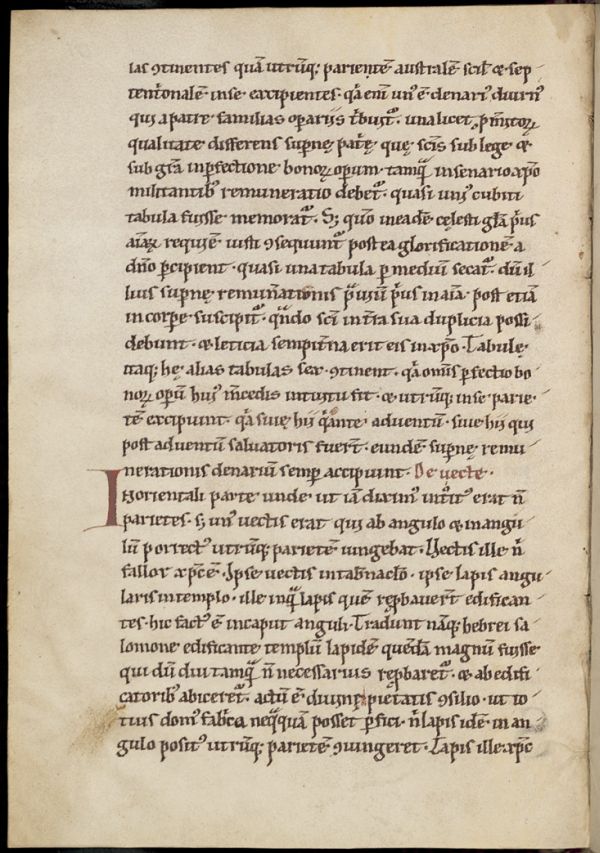 las ꝯtinentes quā utrūq; parientē australē scil̄ & sep
tent̓onalē inse excipientes. q̓a eni᷒ un᷒ ē denari᷒ diurn᷒
qui a patre familias oparijs t̓buit᷒. una licet p̄mitoꝝ
qualitate differens supnę patē, quę scis sub lege &
sub gr̄a inpfectione bonoꝝ opum. tamq̄ insenario xp̄o
militantib᷒ remuneratio debet᷒. quasi uni᷒ cubiti
tabula fuisse memorat᷒. S; quō ineadē cęlesti gl̄a p̓us
aīaꝝ requiē iusti ꝯsequunt᷒ post ea glorificationē a
dn̄o pcipient. quasi una tabula p mediū secat᷒. dū il
lius supnę remun̄ationis p̓us in aīa. post etiā
in corpe suscipit᷒. qn̄do sc̄i in t̓ra sua duplicia possi
debunt. & leticia sempit̓na erit eis in xp̄o. Tabulę
itaq; hę alias tabulas sex ꝯtinent. q̓a om̄is pfectio bo
noꝝ opū hui᷒ m̓cedis intuitu fit. & utrūq; inse parie
tē excipiunt. q̓a siue hij q̓ ante aduentū. siue hij qui
post aduentū saluatoris fuer̄t. eundē supnę remu
nerationis denariū semp accipiunt. De uecte.
IN orientali parte unde ut iā dixim᷒ int̓oit᷒ erat n̄
parietes. s; un᷒ uectis erat qui ab angulo & in angu
lū porrect᷒ utrūq; parietē iungebat. Uectis ille n̄
fallor xp̄c ē. Ipse uectis in tab̓naclo. ipse lapis angu
laris in templo. ille inq̄ lapis quē rep̓bauer̄t edifican
tes. hic fact᷒ ē in caput anguli. Tradunt nāq; hebrei sa
lomone edificante templū lapidē quēdā magnū fuisse
qui dū diu tamq̄ n̄ necessarius rep̓baret᷒. & ab edifi
catorib᷒ abiceret᷒. actū ē diuinę pietatis ꝯsilio. ut to
tius dom᷒ fab̓ca neq̄quā posset pfici. n̄ lapis idē in an
gulo posit᷒ utrūq; parietē ꝯiungeret. Lapis ille xp̄c